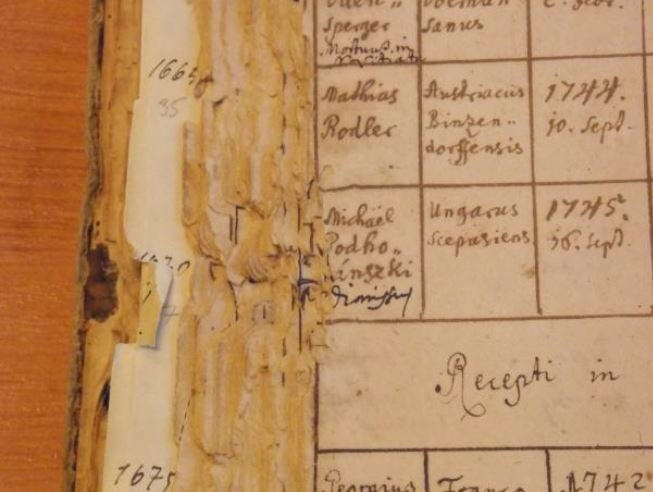 Sperger
sanus
Mortuus in
Mathias
Rodler
Austriacus
Binzen"
dorffensis
1744.
10. Sept.
Michäel
Podho"
ánszki
Ungarus
Scepusiens
1745.
16. Sept.
Recepti in
Georgius
Franco
1742
1665
35
1675